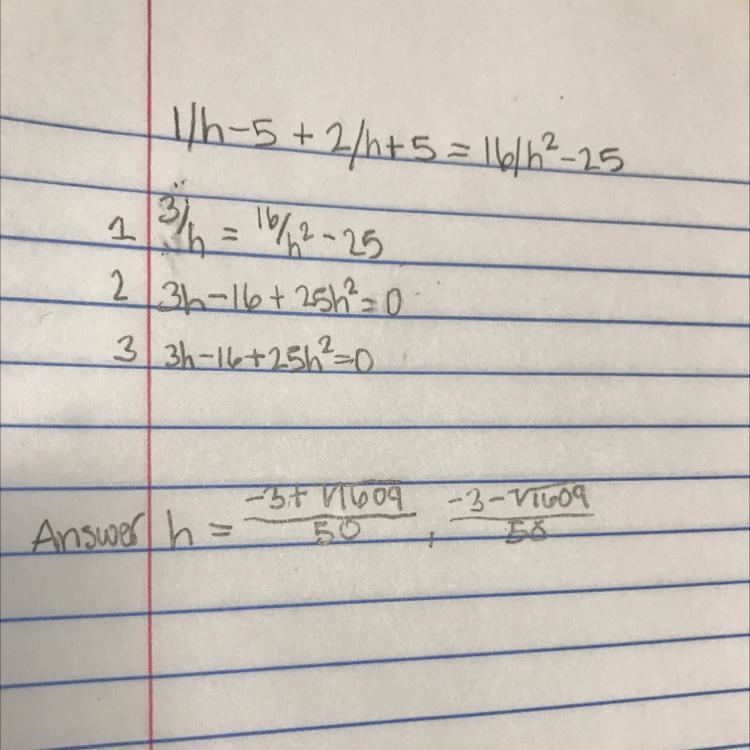 1/h-5 + 2/h+5 = 16/h²-25
1 3/h = 16/h² - 25
2 3h-16 + 25h² = 0
3 3h-16+25h²=0
Answer h = -3+√1609/50 , -3-√1609/50